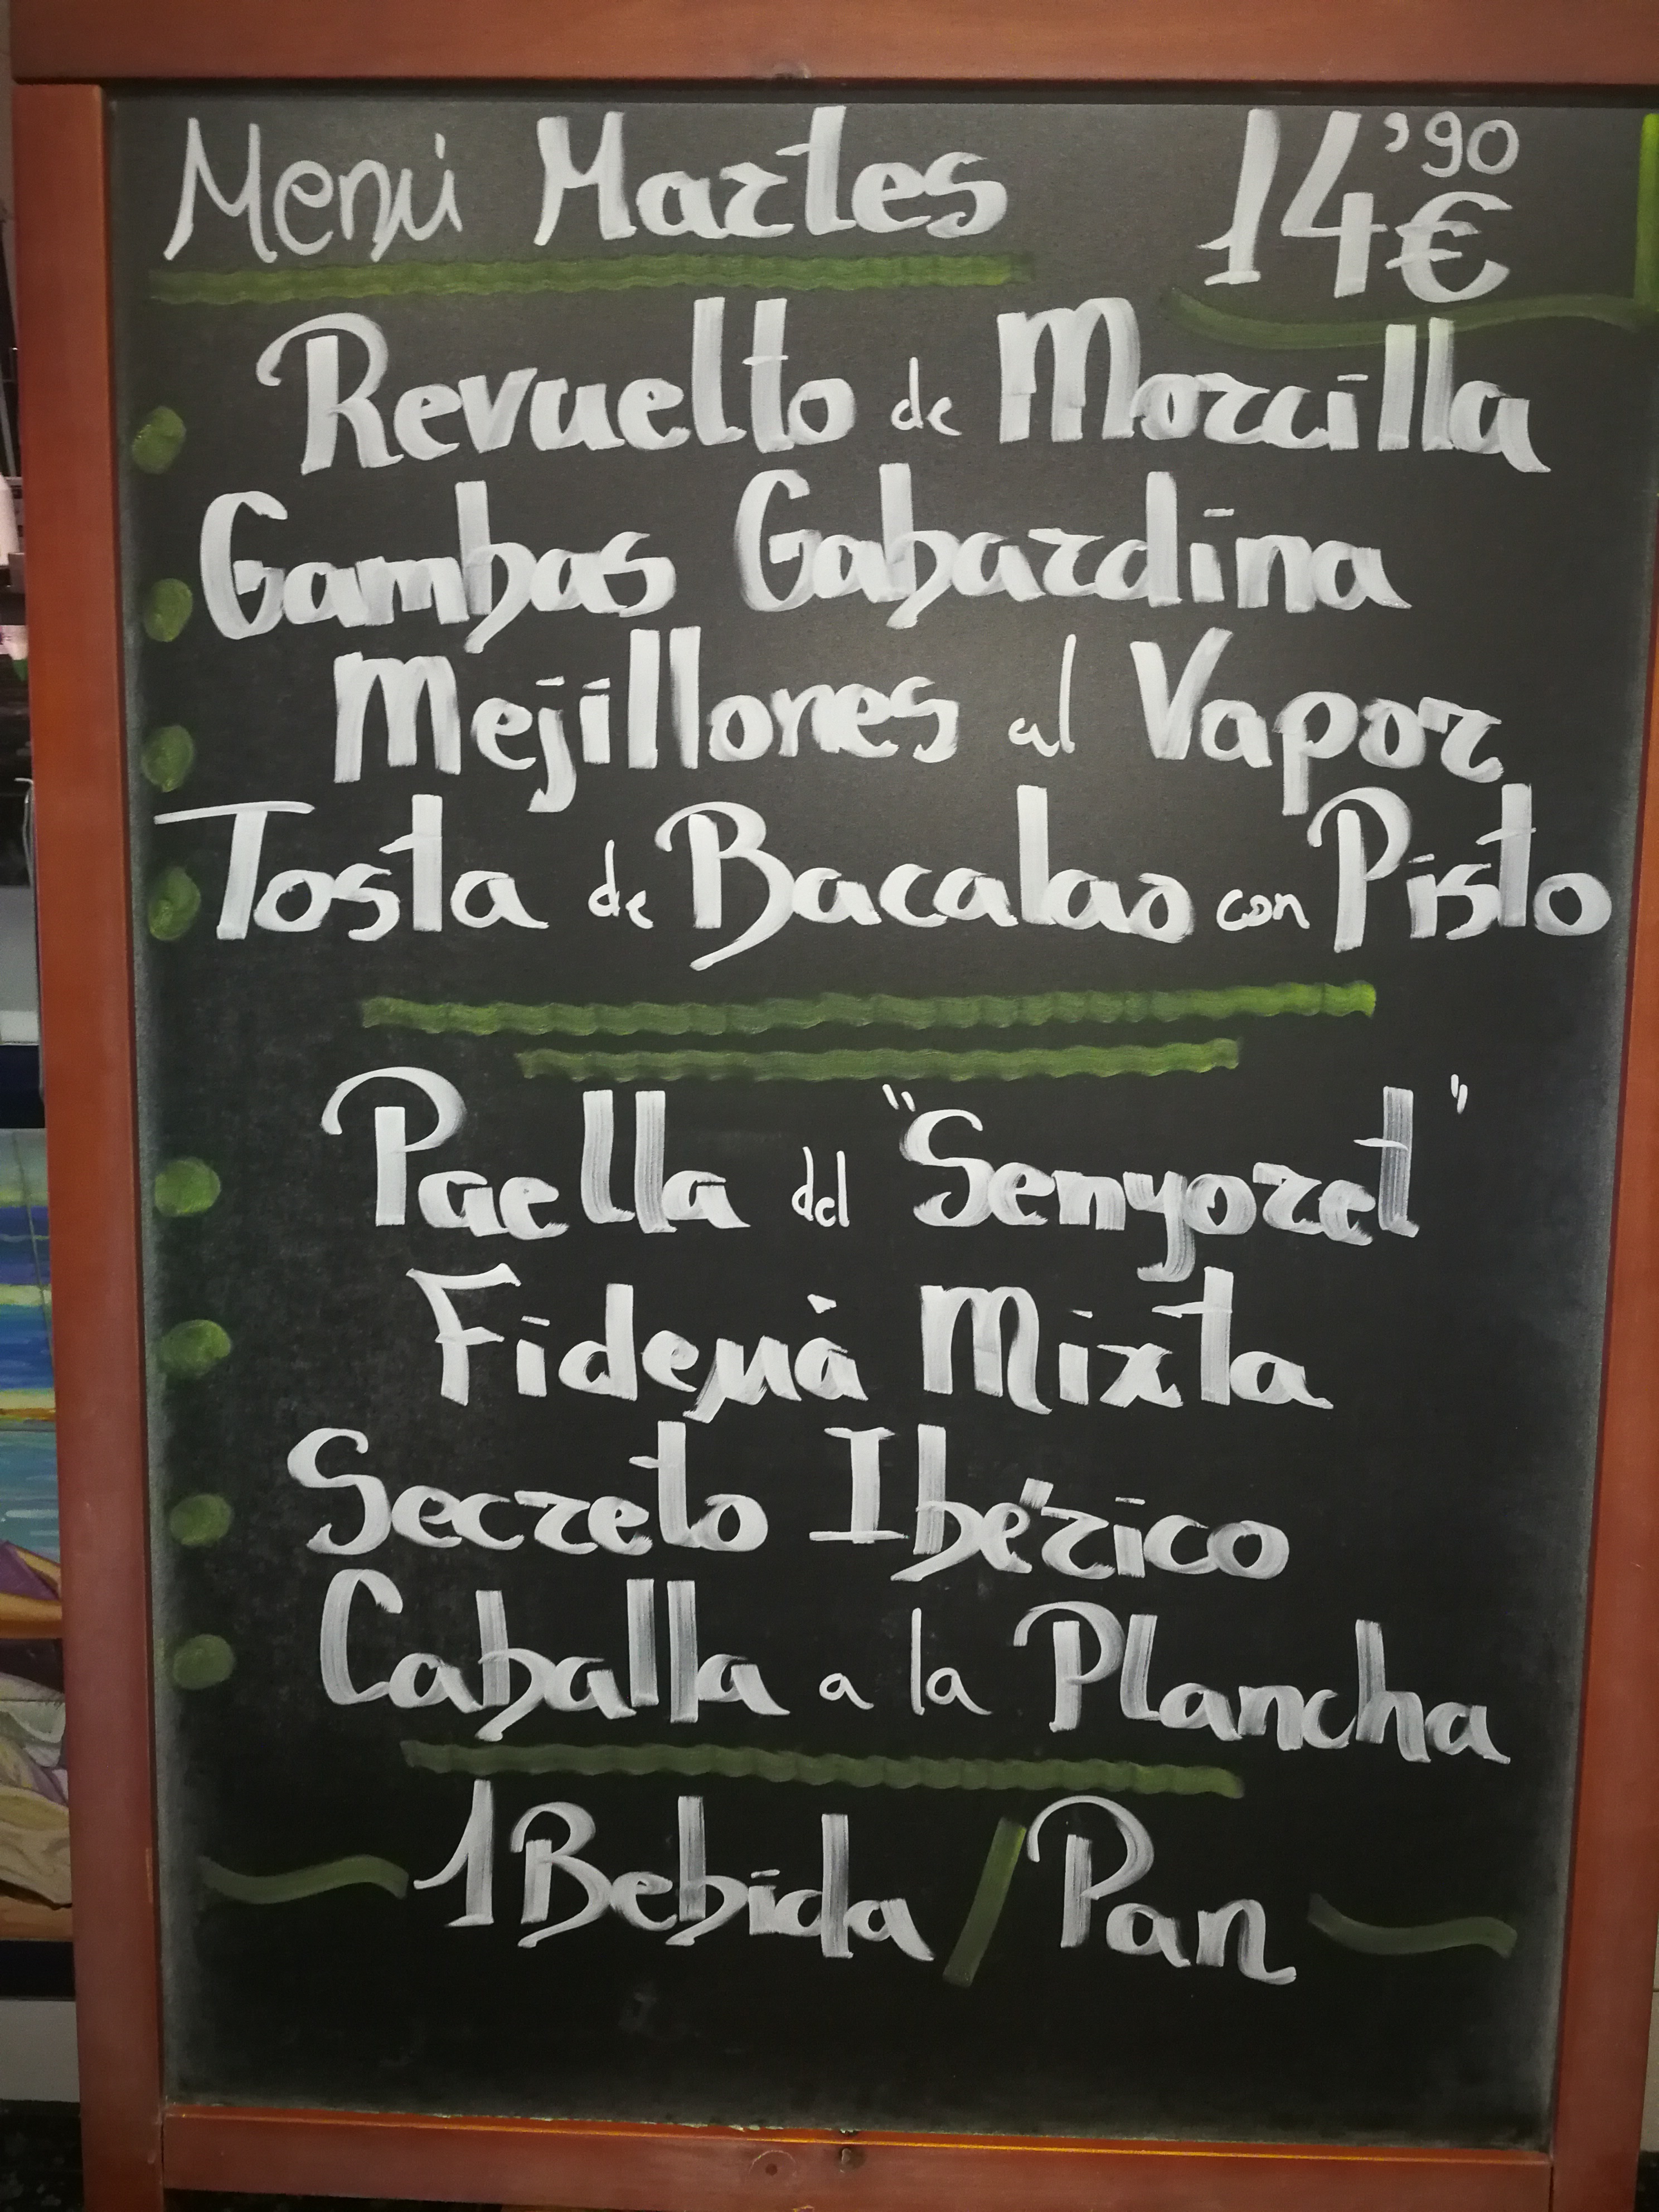 Menú Martes 14'90€
Revuelto de Morcilla
Gambas Gabardina
Mejillones al Vapor
Tosta de Bacalao con Pisto
Paella del "Senyoret"
Fideuà Mixta
Secreto Ibérico
Caballa a la Plancha
1 Bebida / Pan